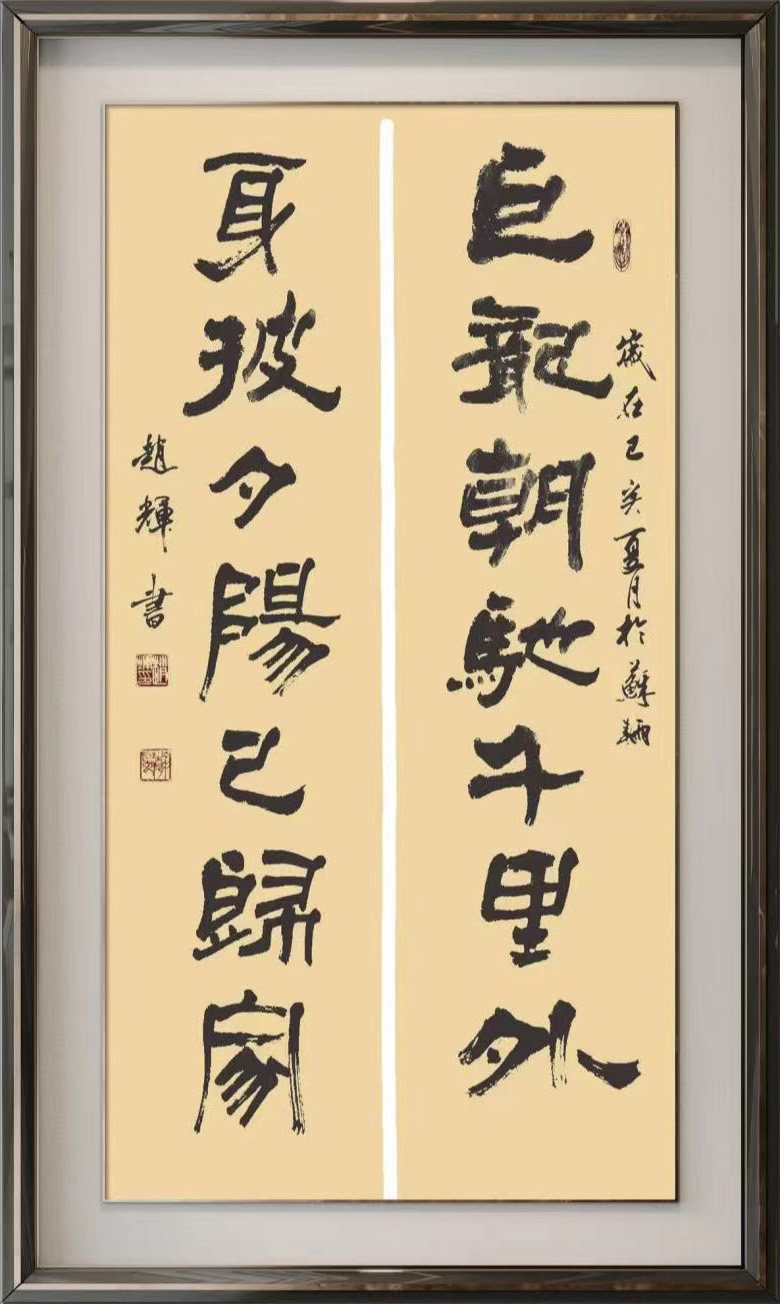 歲在己亥夏月於蘇
巨龍朝馳千里外
身披夕陽已歸家
趙輝書